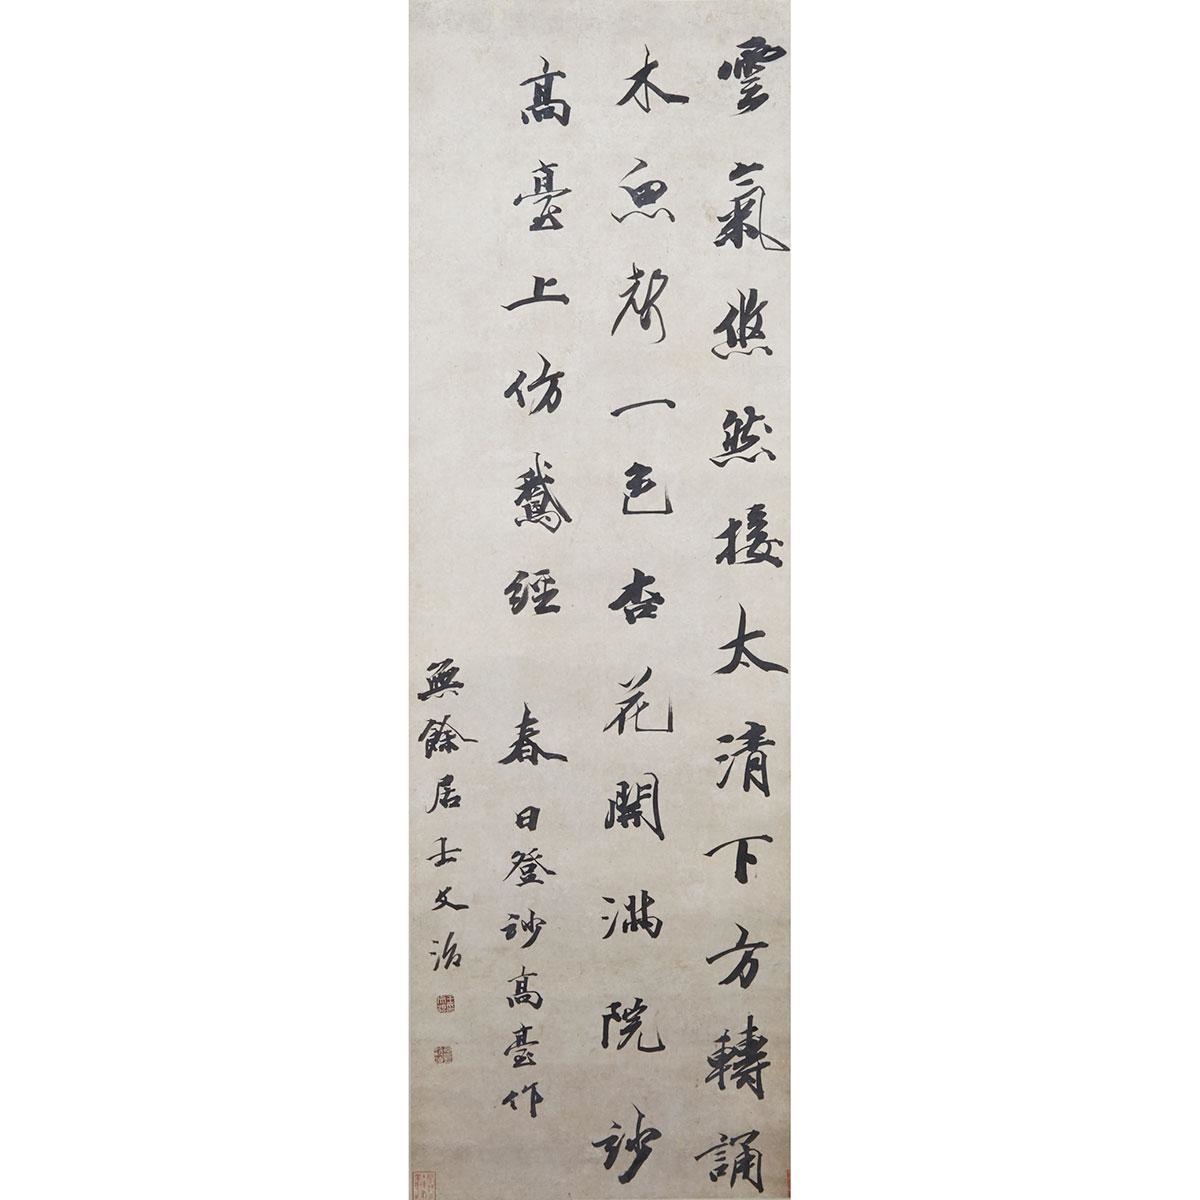 雲氣悠然接太清下方轉誦
木魚聲一色杏花開滿院玅
高臺上仿鵞經 春日登玅高臺作
無餘居士文治